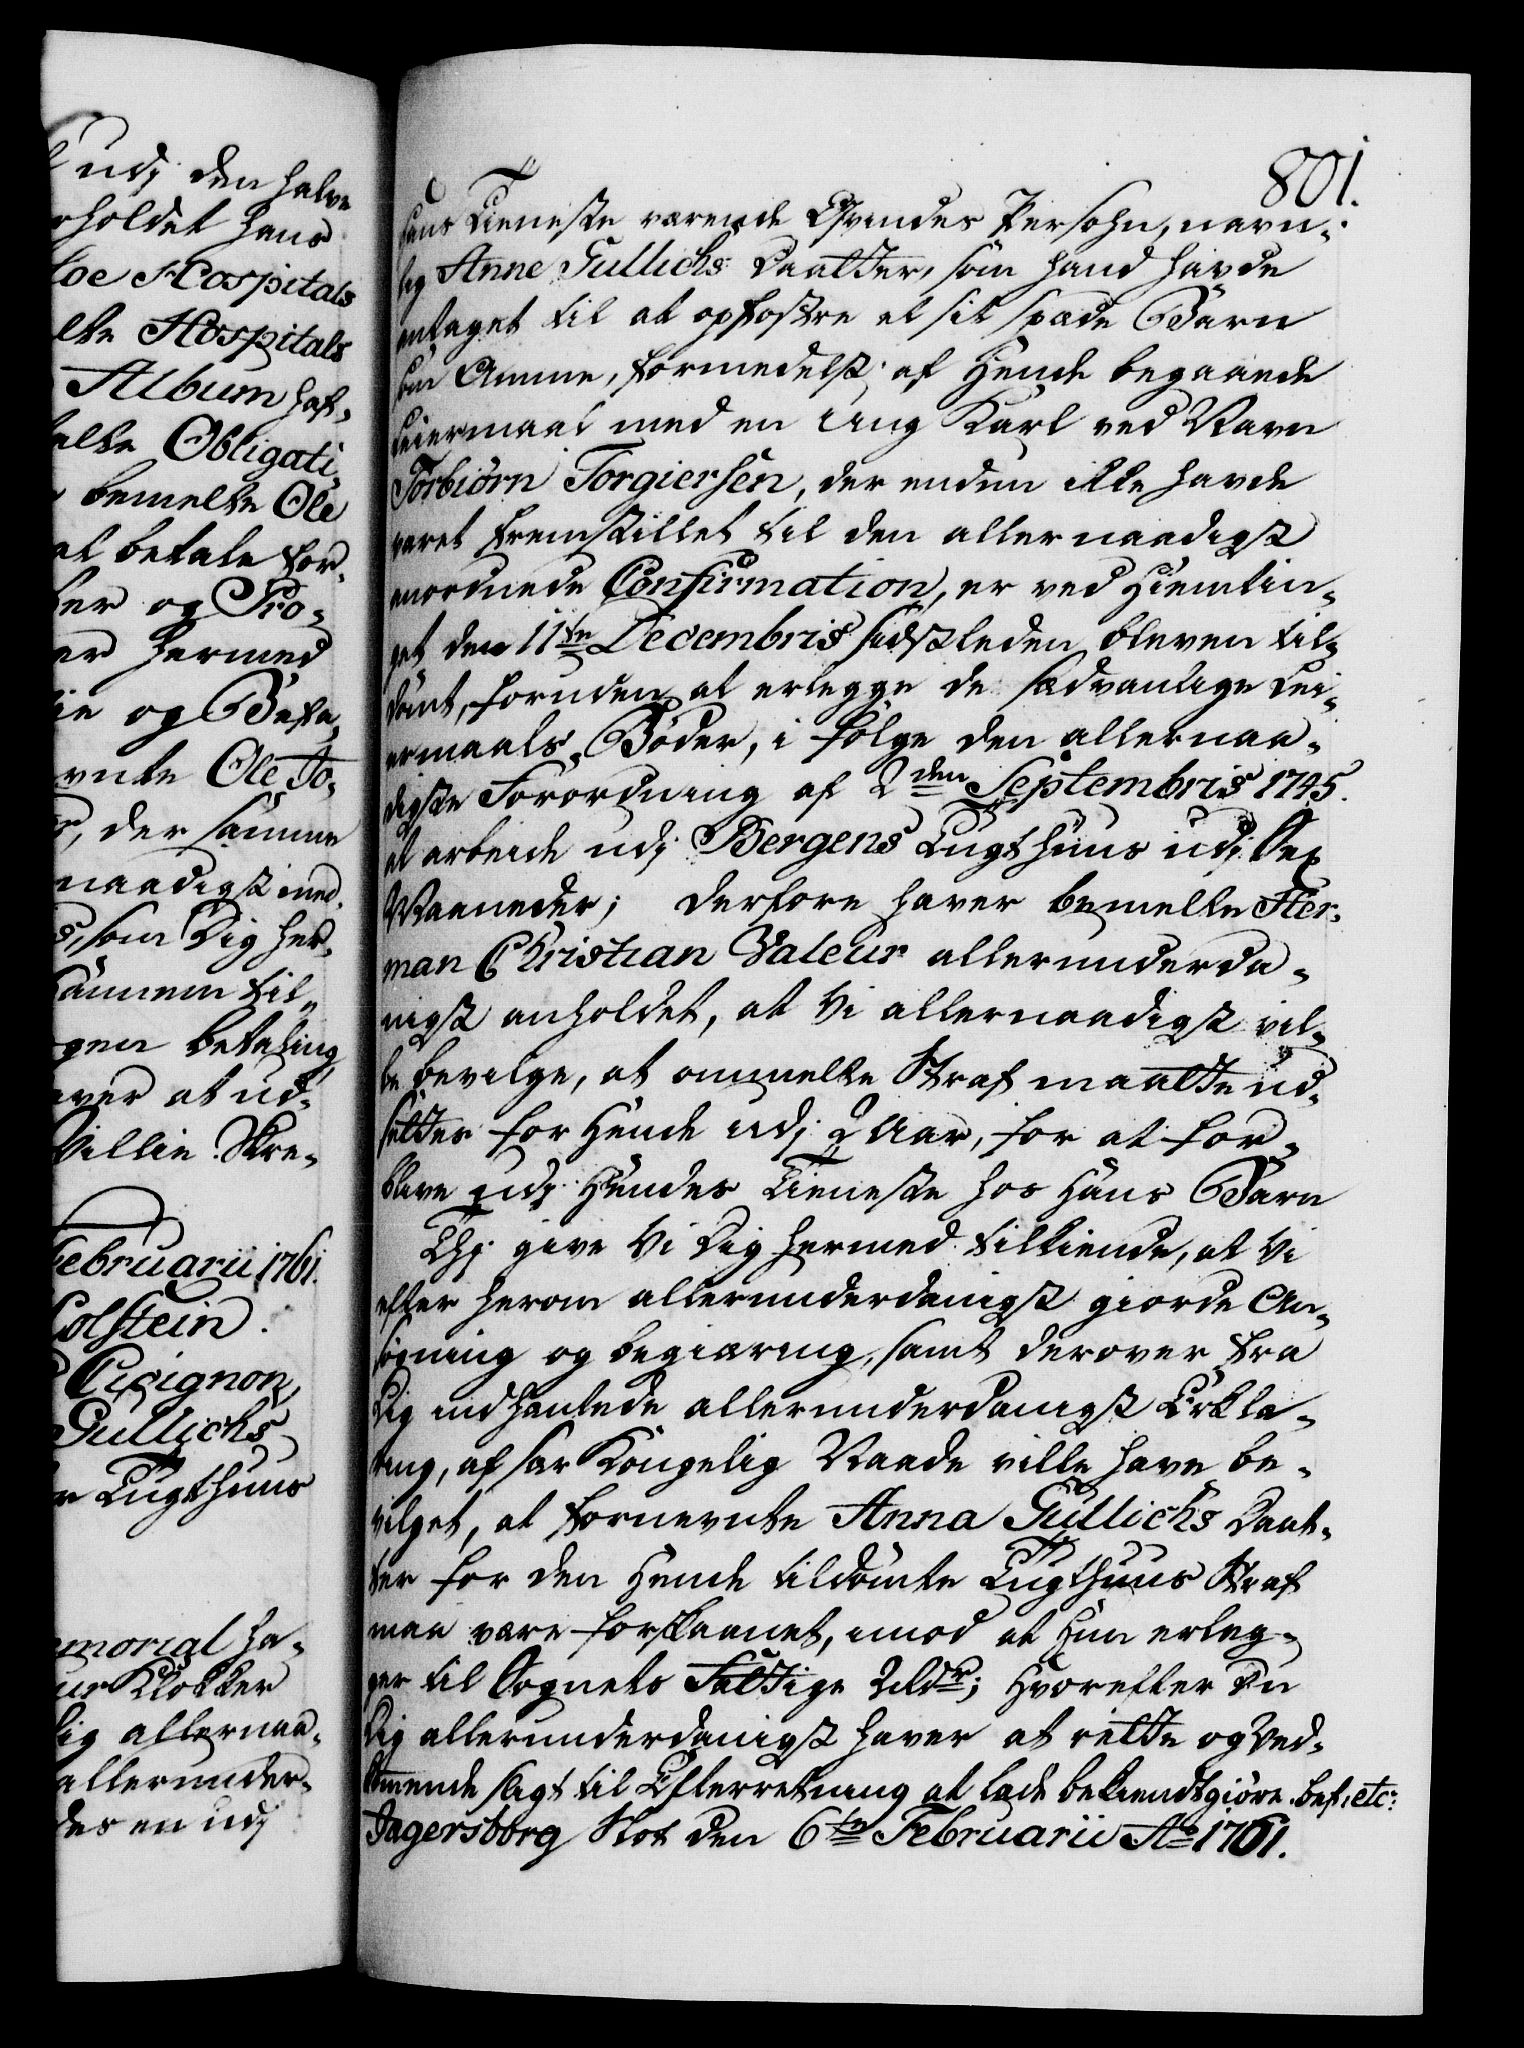 udj den halve
holdet hans
toe Hospitals
elte Hospitals
Album haf-
elte Obligati-
bemelte Ole
at betale for-
ker og Pro-
er hermed
ie og Befa-
vnte Ole To-
der samme
naadigst med-
som Dig her-
sammen til-
gen betaling
aver at ud-
Villie. Skre-
Februarii 1761.
Holstein.
Cicignon,
Gullichs
Tugthuus
emorial ha-
ur Klokker
Dig allernaa-
allerunder-
des en udj
801.
hans Tieneste værende Qvindes Persohn, navn-
lig Anne Gullichs Daatter, som hand havde
antaget til at opfostre et sit spæde Barn
som Amme, formedelst af Hende begaaede
Leiermaal med en Ung Karl ved Navn
Torbiörn Torgiersen, der endnu ikke havde
været fremstillet til den allernaadigst
anordnede Confirmation, er ved Hiemtin-
get den 11te Decembris sidstleden bleven til-
dömt, foruden at erlegge de sædvanlige Lei-
ermaals Böder, i fölge den allernaa-
digste Forordning af 2den Septembris 1745.
at arbeide udj Bergens Tugthuus udj Sex
Maaneder; derfore haver bemelte Her-
man Christian Valeur allerunderda-
nigst anholdet, at Vi allernaadigst vil-
le bevilge, at ommelte Straf maatte ud-
settes for Hende udj 2 Aar, for at for-
blive udj Hendes Tieneste hos Hans Barn
Thj give Vi Dig hermed tilkiende, at Vi
efter herom allerunderdanigst giorde An-
søgning og begiæring, samt derover fra
Dig indhentede allerunderdanigst Erklæ-
ring, af sær Kongelig Naade ville have be-
vilget, at fornevnte Anna Gullichs Daat-
ter for den Hende tildömte Tugthuus Straf
maa være forskaanet, imod at Hun erleg-
ger til Sognets Fattige 2 Rdr; Hvorefter Du
Dig allerunderdanigst haver at rette og Ved-
kommende sligt til Efterretning at lade bekiendtgiöre. bef. etc:
Jagersborg Slot den 6te Februarii Ao 1761.